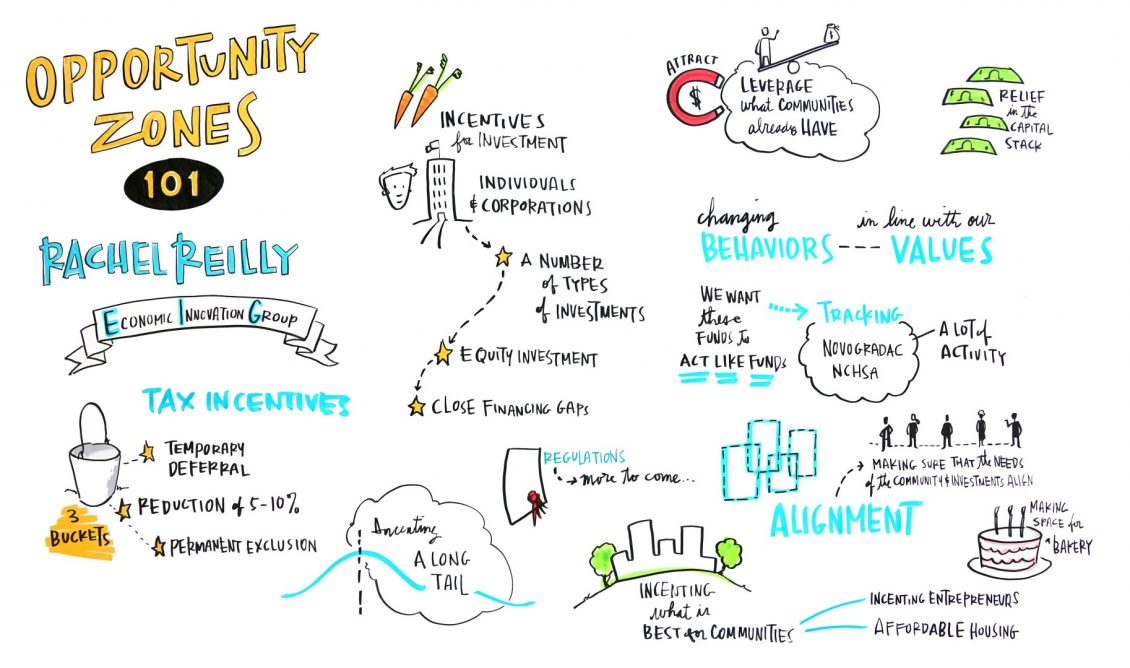 OPPORTUNITY
ZONES
101
RACHEL REILLY
ECONOMIC INNOVATION GROUP
TAX INCENTIVES
3
BUCKETS
TEMPORARY
DEFERRAL
REDUCTION of 5-10%
PERMANENT EXCLUSION
INCENTIVES
for INVESTMENT
INDIVIDUALS
& CORPORATIONS
A NUMBER
of TYPES
of INVESTMENTS
EQUITY INVESTMENT
CLOSE FINANCING GAPS
Incenting
A LONG
TAIL
REGULATIONS
more to come...
ATTRACT
$
$
LEVERAGE
what COMMUNITIES
already HAVE
RELIEF
in the
CAPITAL
STACK
changing
BEHAVIORS
in line with our
VALUES
WE WANT
these
FUNDS to
ACT LIKE FUNDS
TRACKING
NOVOGRADAC
NCHSA
A LOT of
ACTIVITY
MAKING SURE THAT the NEEDS
of the COMMUNITY & INVESTMENTS ALIGN
ALIGNMENT
MAKING
SPACE for
a BAKERY
INCENTING
what is
BEST for COMMUNITIES
INCENTING ENTREPRENEURS
AFFORDABLE HOUSING